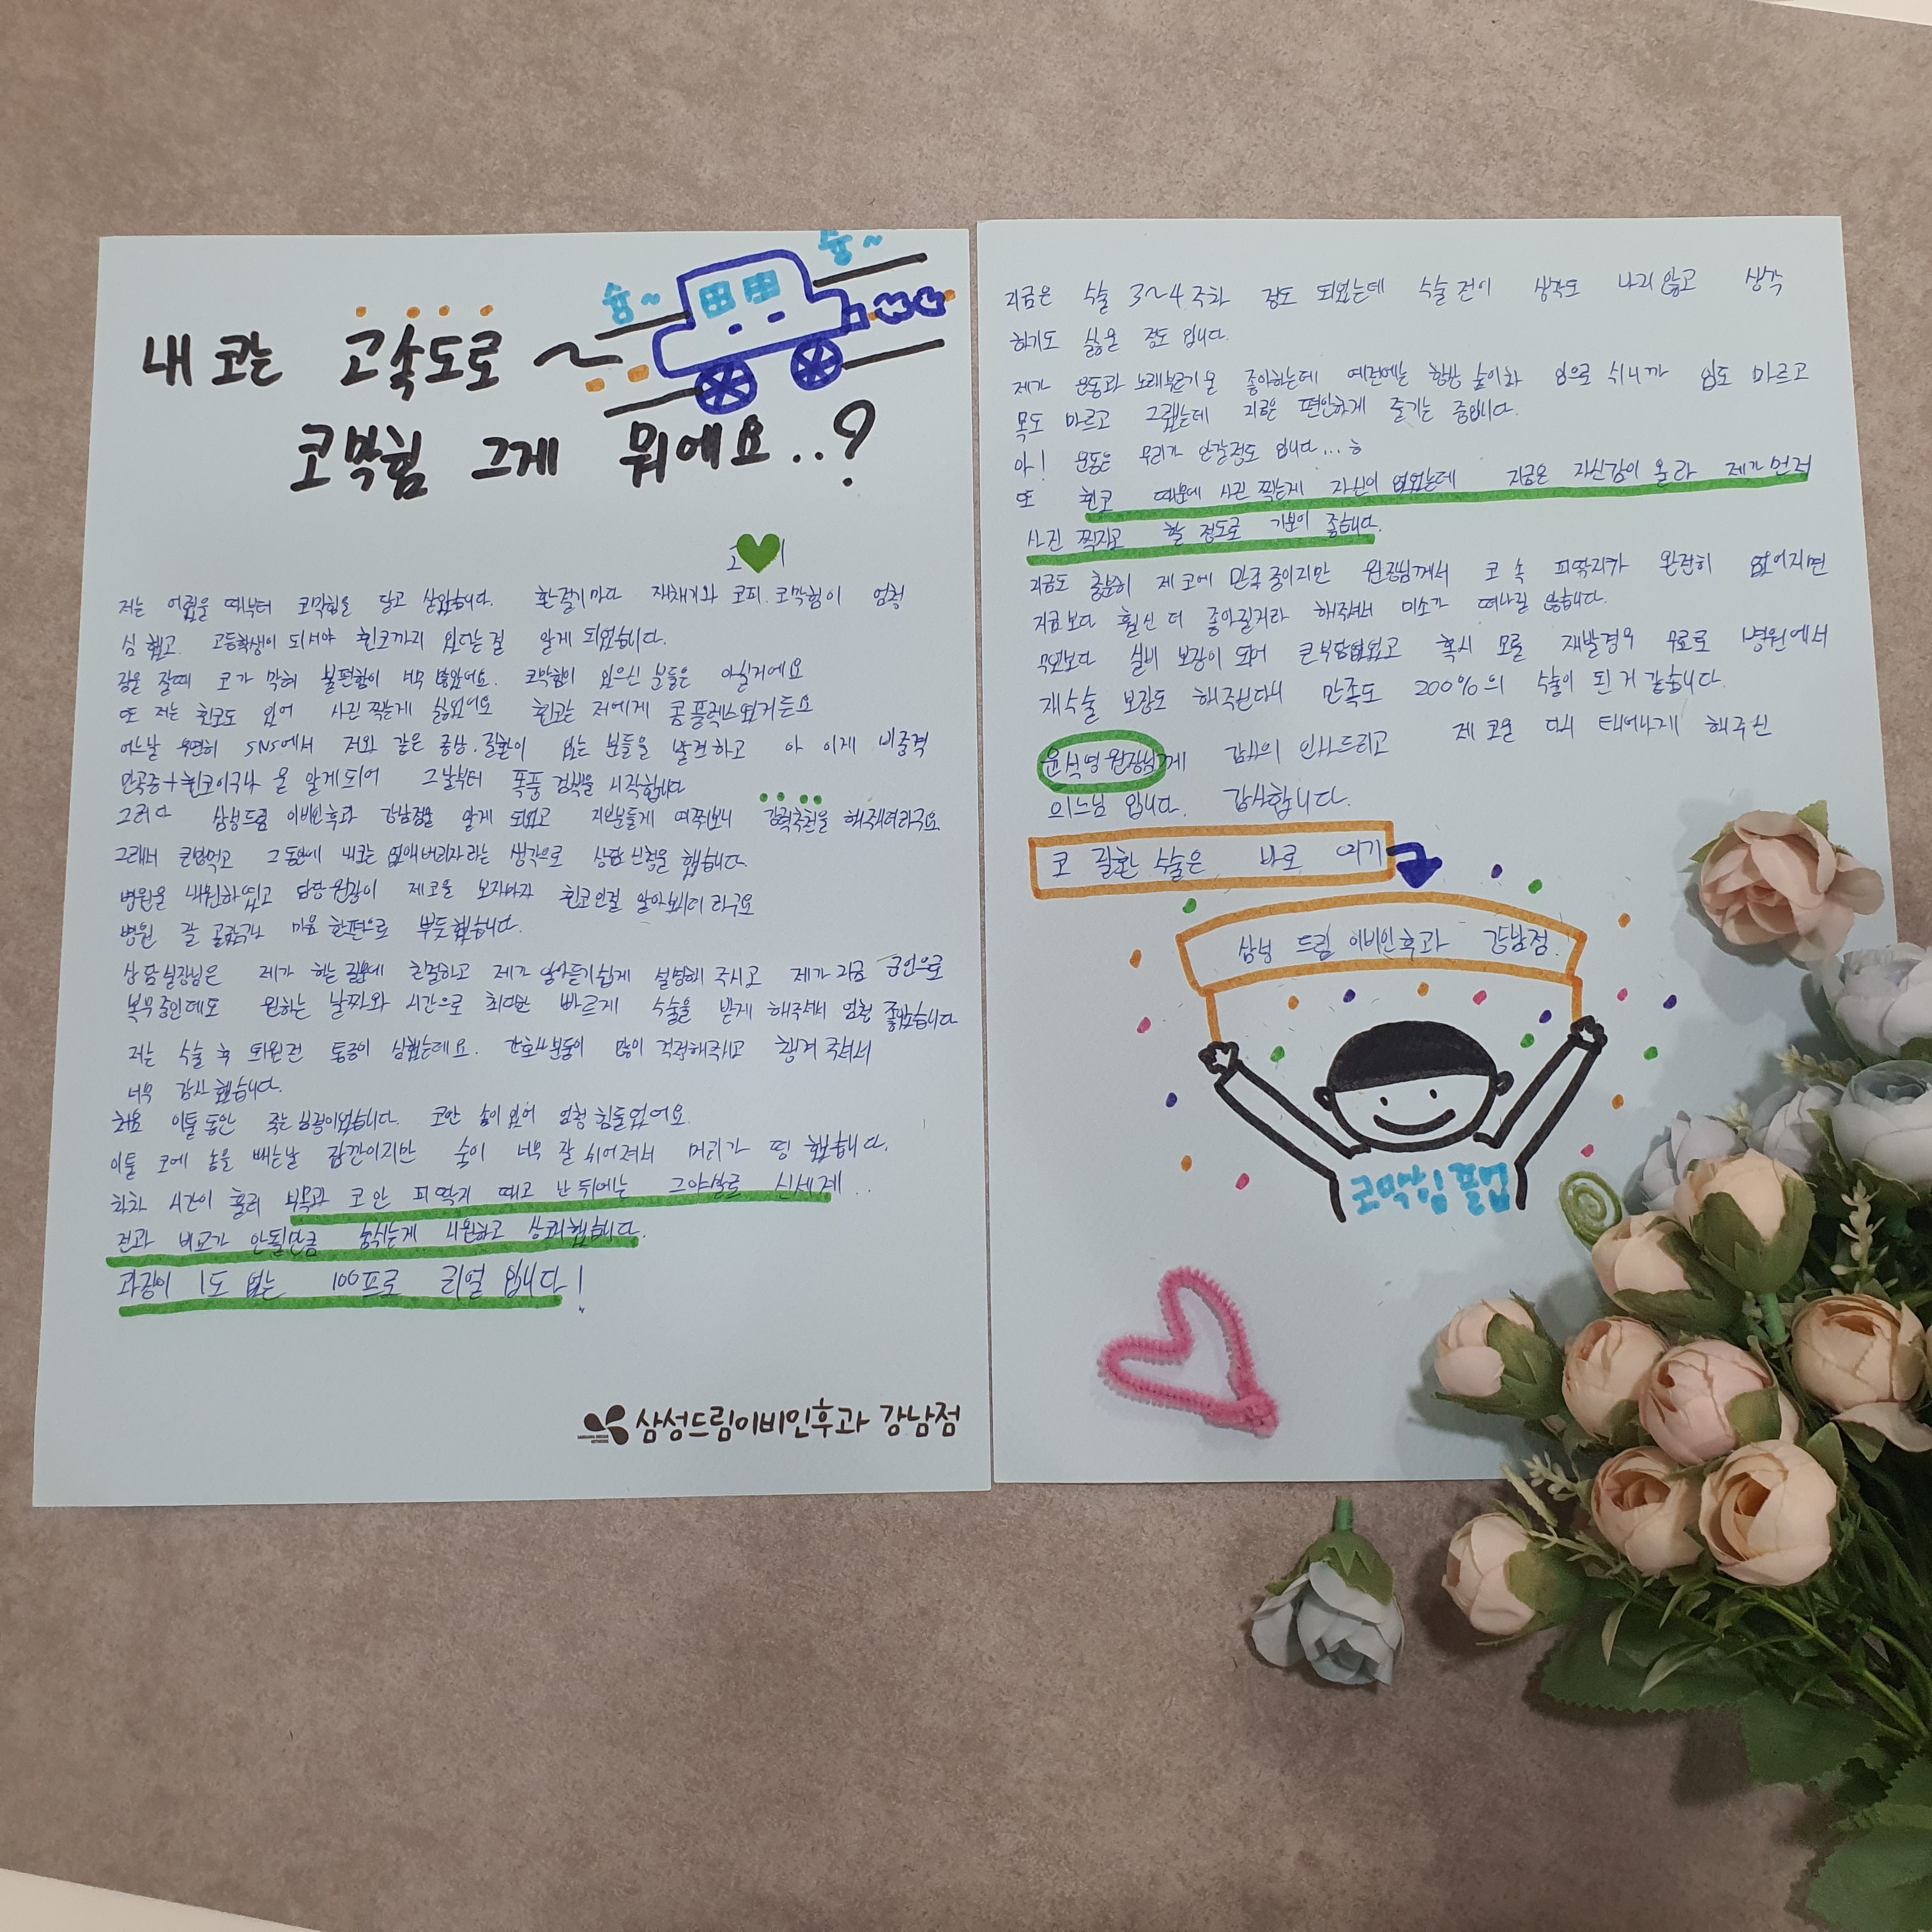 슝~
슝~
내 코는 고속도로~
코막힘 그게 뭐에요..?
고♥이
저는 어렸을 때부터 코막힘을 달고 살았습니다. 환절기마다 재채기와 코피. 코막힘이 엄청
심했고. 고등학생이 되서야 휜코까지 있다는걸 알게 되었습니다.
잠을 잘때 코가 막혀 불편함이 너무 많았어요. 코막힘이 있으신 분들은 아실거에요
또 저는 휜코도 있어 사진 찍는게 싫었어요 휜코는 저에게 콤플렉스였거든요
어느날 우연히 SNS에서 저와 같은 증상.질환이 있는 분들을 발견하고 아 이게 비중격
만곡증+휜코이구나 을 알게되어 그날부터 폭풍 검색을 시작합니다
그러다 삼성드림 이비인후과 강남점을 알게 되었고 지인분들게 여쭤보니 강력추천을 해주더라구요
그래서 큰맘먹고 그동안에 내코는 없애버리자라는 생각으로 상담 신청을 했습니다.
병원을 내원하였고 담당원장이 제코를 보자마자 휜코인걸 알아보시더라구요
병원 잘 골랐구나 마음 한편으로 뿌듯했습니다.
상담실장님은 제가 하는 질문에 친절하고 제가 알아듣기쉽게 설명해 주시고 제가 지금 군인으로
복무중인데도 원하는 날짜와 시간으로 최대한 빠르게 수술을 받게 해주셔서 엄청 좋았습니다
저는 수술 후 퇴원전 통증이 심했는데요. 간호사분들이 많이 걱정해주시고 챙겨 주셔서
너무 감사 했습니다.
처음 이틀동안 죽는 심정이었습니다. 코안 솜이 있어 엄청 힘들었어요.
이틀 코에 솜을 빼는날 잠깐이지만 숨이 너무 잘 쉬어져서 머리가 띵 했습니다.
차차 시간이 흘러 부목과 코안 피딱지 떼고 난 뒤에는 그야말로 신세계..
전과 비교가 안될만큼 숨쉬는게 시원하고 상쾌했습니다.
과장이 1도 없는 100프로 리얼 입니다!
삼성드림이비인후과 강남점
지금은 수술 3~4주차 정도 되었는데 수술전이 생각도 나지않고 생각
하기도 싫은 정도 입니다.
제가 운동과 노래부르기을 좋아하는데 예전에는 항상 숨이차 입으로 쉬니까 입도 마르고
목도 마르고 그랬는데 지금은 편안하게 즐기는 중입니다.
아! 운동은 무리가 안갈정도 입니다...ㅎ
또 휜코 때문에 사진 찍는게 자신이 없었는데 지금은 자신감이 올라 제가먼저
사진 찍자고 할 정도로 기분이 좋습니다.
지금도 충분히 제 코에 만족중이지만 원장님께서 코 속 피딱지가 완전히 없어지면
지금보다 훨신 더 좋아질거라 해주셔서 미소가 떠나질 않습니다.
무엇보다 실비 보장이 되어 큰부담없었고 혹시 모를 재발경우 무료로 병원에서
재수술 보장도 해주신다니 만족도 200%의 수술이 된거 같습니다.
윤석영원장님께 감사의 인사드리고 제 코를 다시 태어나게 해주신
의느님 입니다. 감사합니다.
코 질환 수술은 바로 여기
삼성 드림 이비인후과 강남점.
코막힘 쫄업